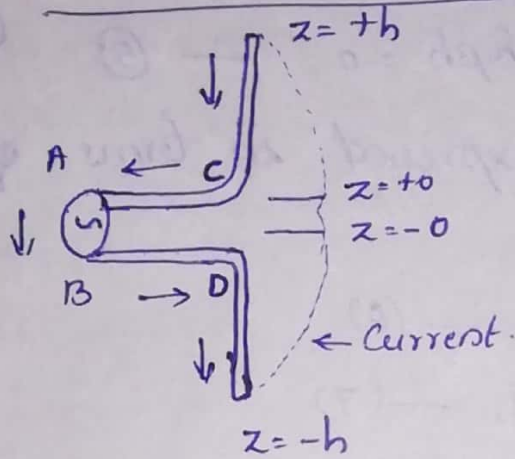 z = +h
A
C
z = +0
S
z = -0
B
D
← Current.
z = -h